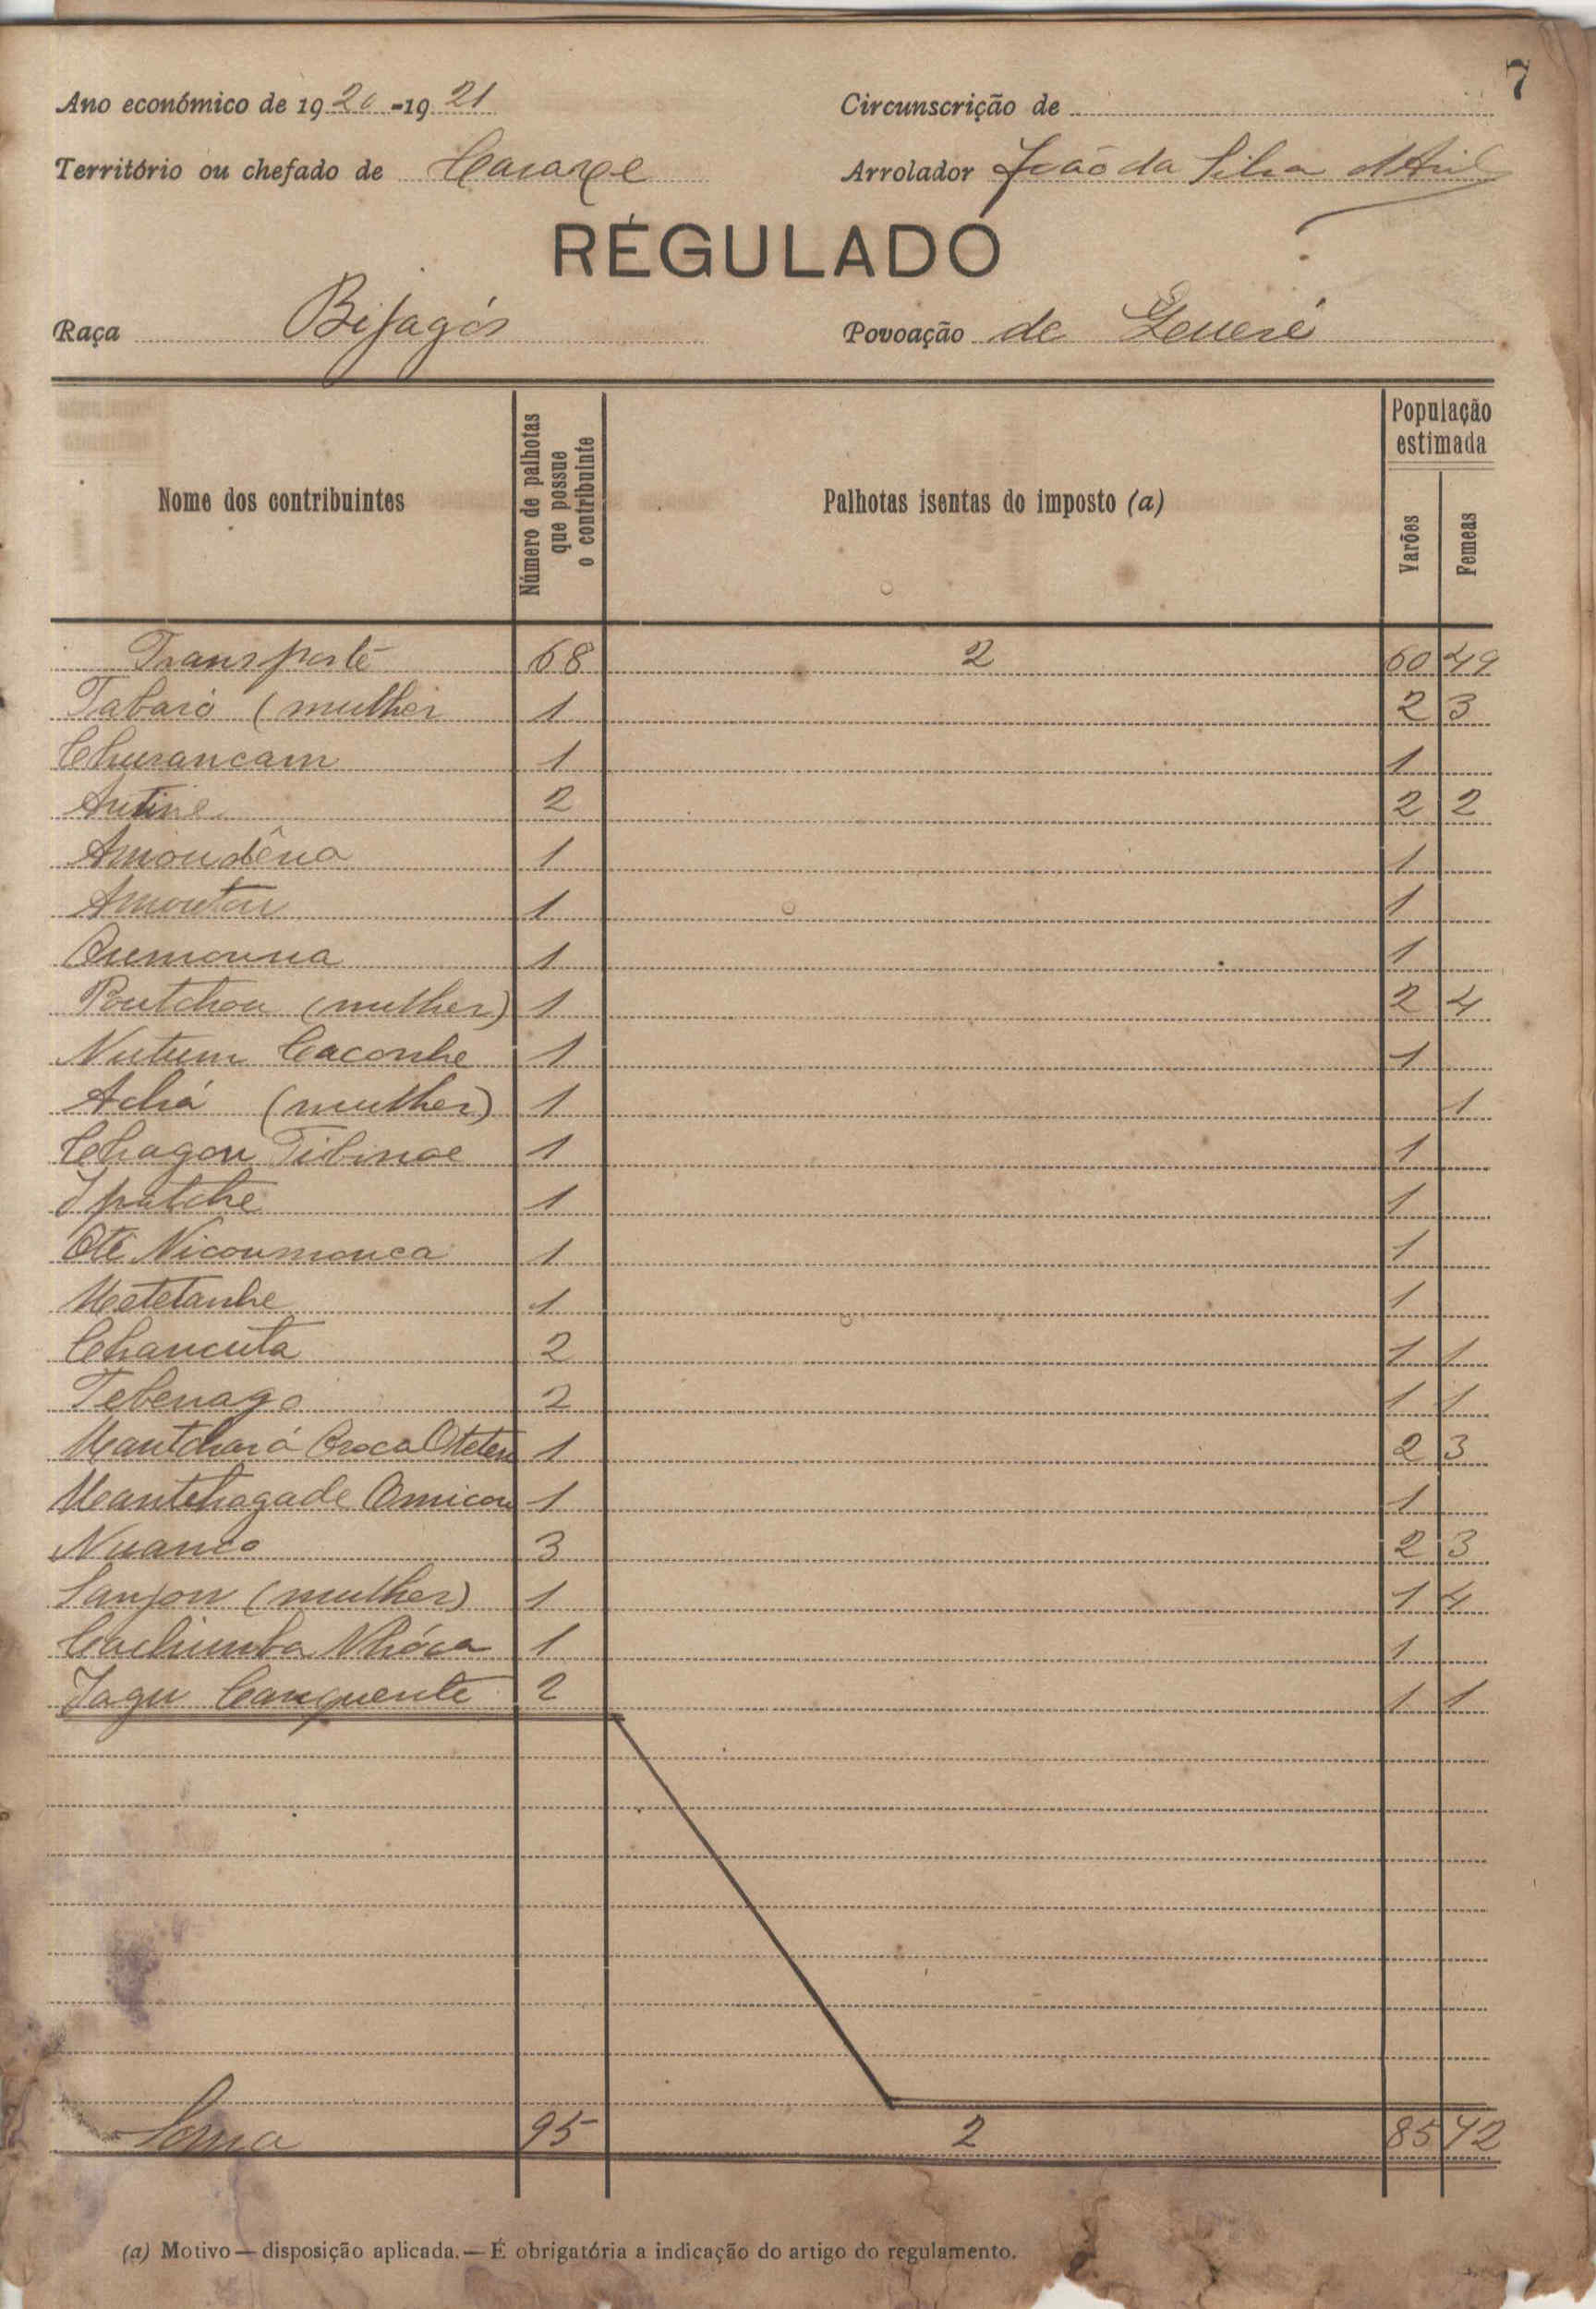 7
Ano económico de 1920-1921 Circunscrição de
Território ou chefado de Arrolador João da Silva
REGULADO
Raça Bijagós Povoação de
Nome dos contribuintes Número de palhotas que possue o contribuinte Palhotas isentas do imposto (a) População estimada Varões Femeas
Transporte 68 2 60 49
Tabaró (mulher 1 2 3
Churancam 1 1
2 2 2
Amoudêna 1 1
Amoutou 1 1
1 1
Poutchou (mulher) 1 2 4
Nutum Caconhe 1 1
Achá (mulher) 1 1
Chagou 1 1
Ipatche 1 1
Oté Nicoumouca 1 1
Metetanhe 1 1
Chancuta 2 1 1
Tebenago 2 1 1
1 2 3
1 1
Nuanco 3 2 3
Sanjou (mulher) 1 1 4
Cachimba Nhóca 1 1
Jagu Canquente 2 1 1
Soma 95 2 85 72
(a) Motivo — disposição aplicada. — É obrigatória a indicação do artigo do regulamento.